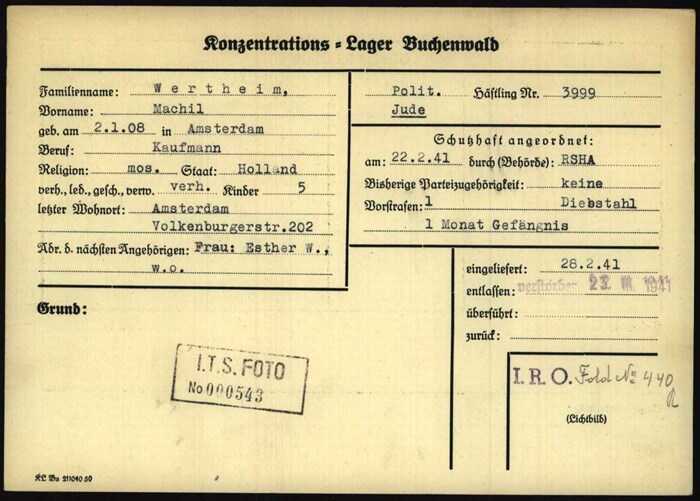 Konzentrations - Lager Buchenwald
Familienname: Wertheim,
Vorname: Machil
geb. am 2.1.08 in Amsterdam
Beruf: Kaufmann
Religion: mos. Staat: Holland
verh., led., gesch., verw. verh. Kinder 5
letzter Wohnort: Amsterdam
Volkenburgerstr.202
Adr. d. nächsten Angehörigen: Frau: Esther W.,
w.o.
Polit. Häftling Nr. 3999
Jude
Schutzhaft angeordnet:
am: 22.2.41 durch (Behörde): RSHA
Bisherige Parteizugehörigkeit: keine
Vorstrafen: 1 Diebstahl
1 Monat Gefängnis
eingeliefert: 28.2.41
entlassen: verstorben 1941
überführt:
zurück:
Grund:
I.T.S. FOTO
No 000543
I.R.O. Fold No 440
(Lichtbild)